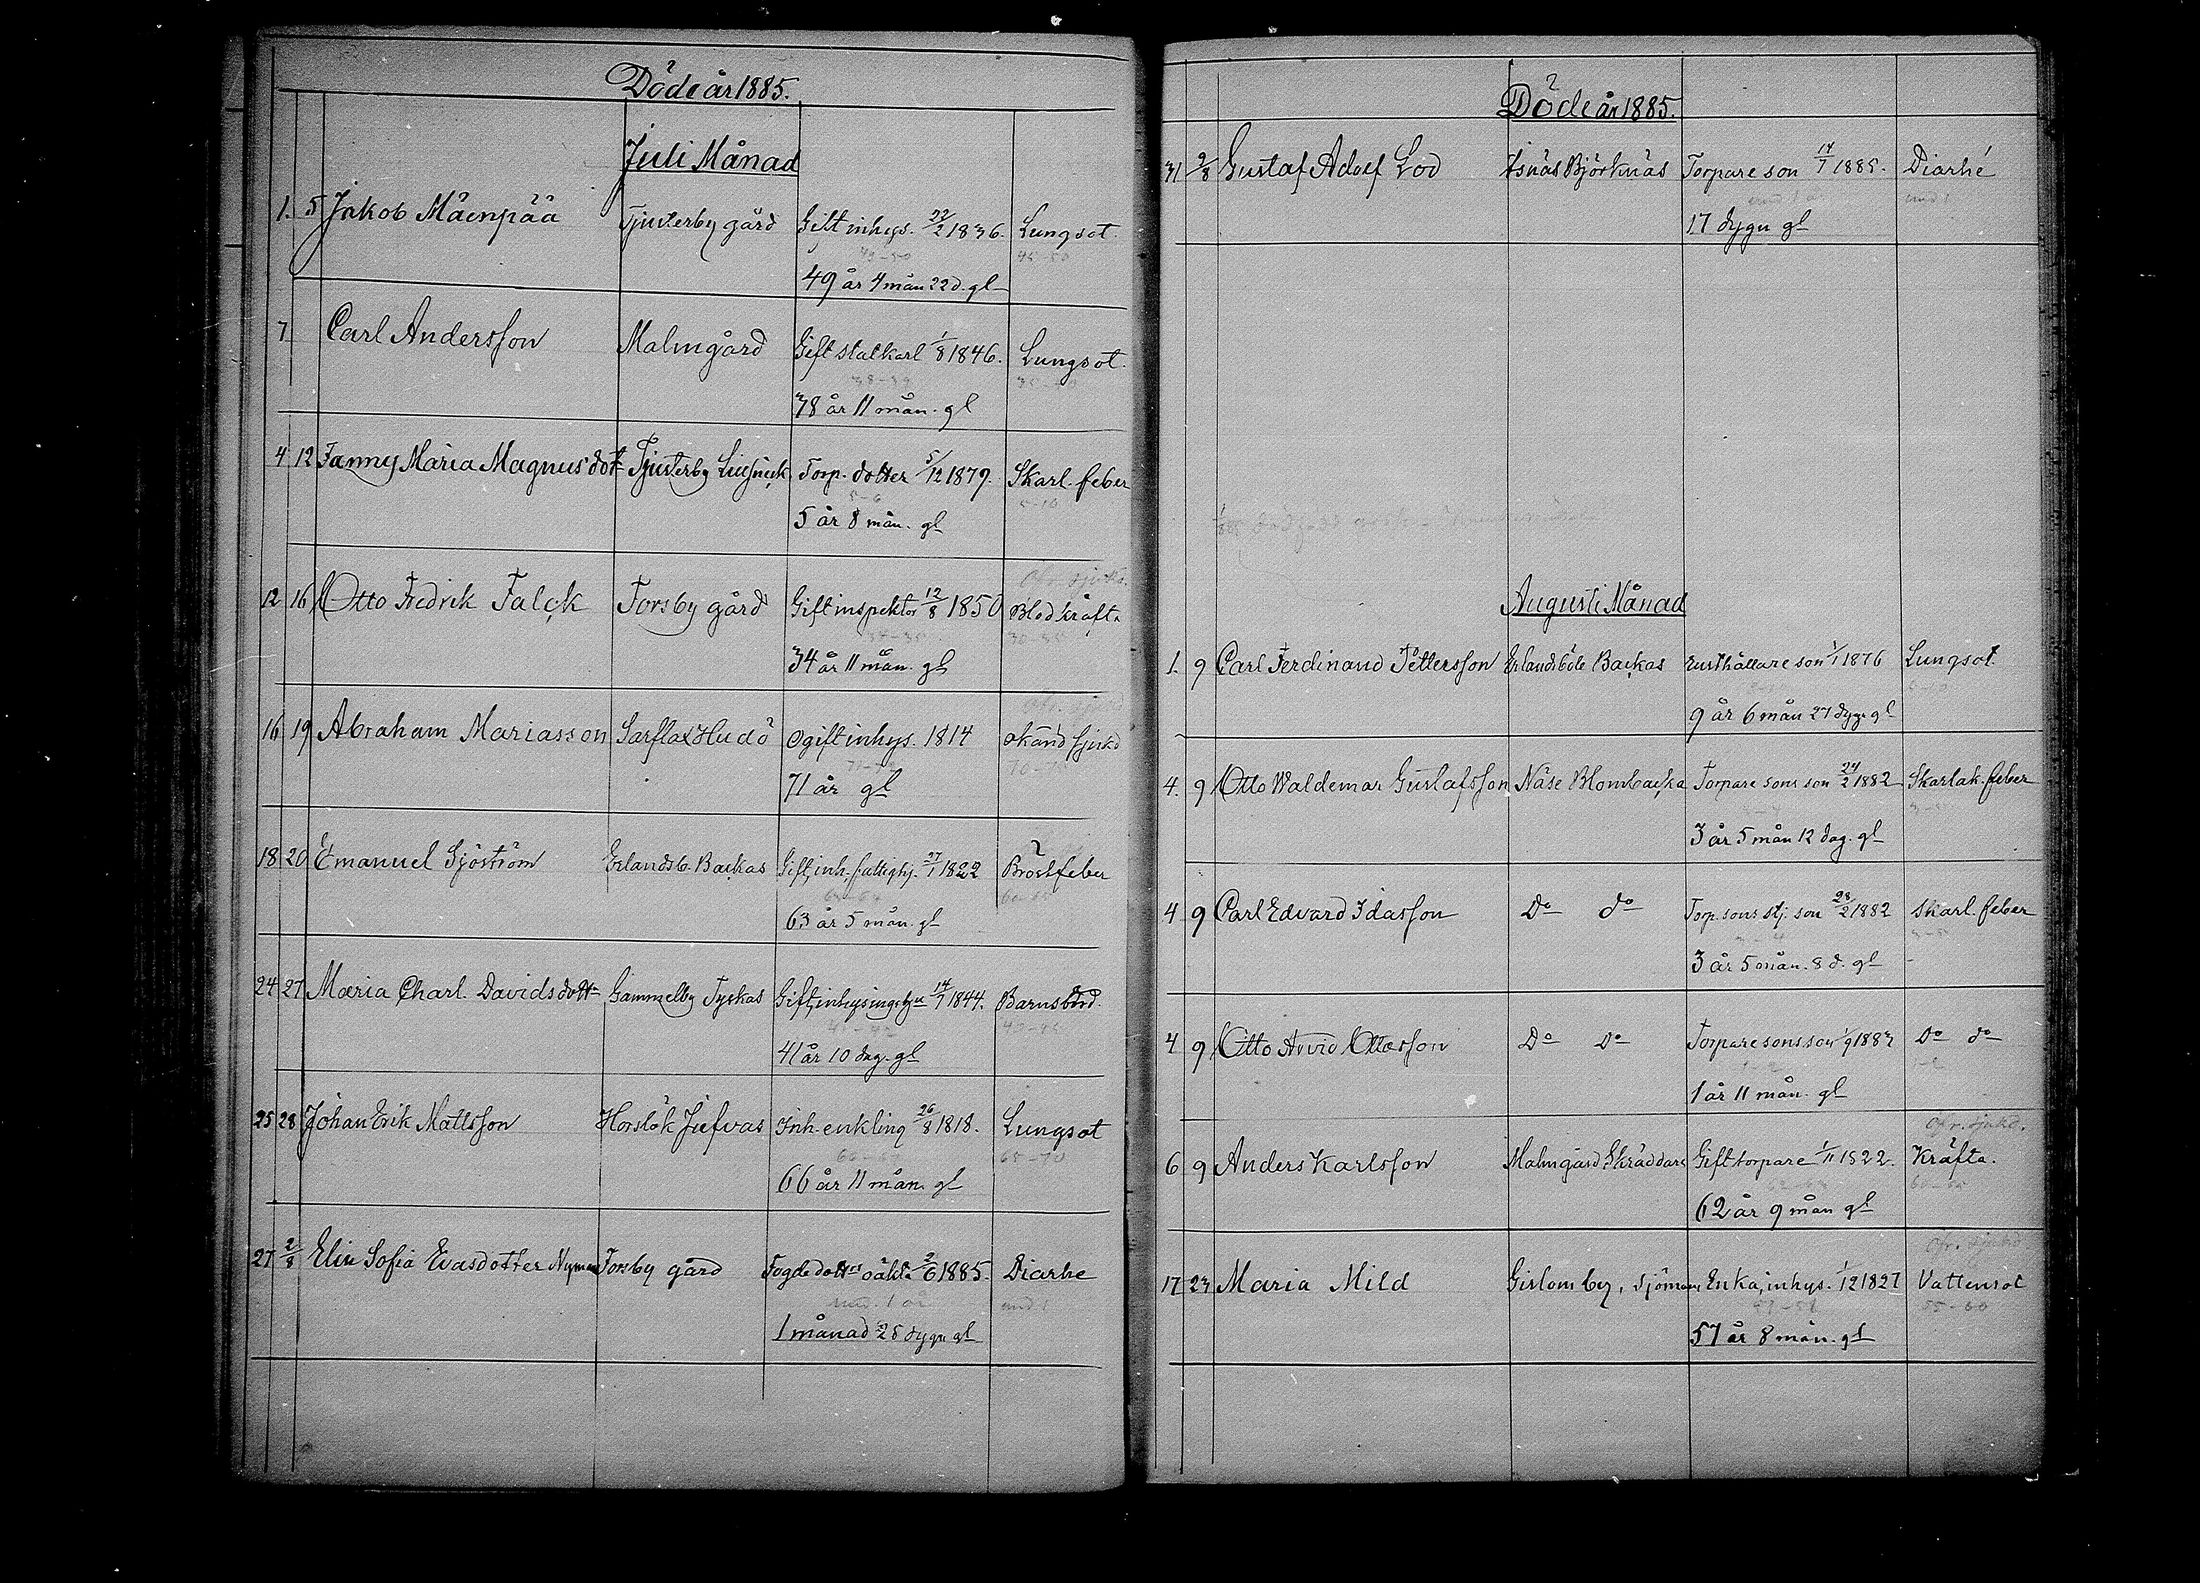 Döde år 1885.
Juli Månad
1. 5 Jakob Mäenpää Tjusterby gård Gift inhys. 22/2 1836. Lungsot.
49-50 45-50
49 år 4 mån 22 d. gl
7 Carl Andersson Malmgård Gift statkarl 1/8 1846. Lungsot.
38-39
38 år 11 mån. gl
4 12 Fanny Maria Magnusdotr Tjusterby Torp. dotter 5/12 1879. Skarl. feber
5-6 5-10
5 år 8 mån. gl
ofr. sjukd.
12 16 Otto Fredrik Falck Forsby gård Gift inspektor 12/8 1850 Blodkräfta
34-35 30-35
34 år 11 mån. gl
16 19 Abraham Mariasson Sarflax Hudö ogift inhys. 1814 okänd sjukd
70-75
71 år gl
18 20 Emanuel Sjöström Erlandsb. Backas Gift, inh. fattighj. 27/1 1822 Bröstfeber
60-65
63 år 5 mån. gl
24 27 Maria Charl. Davidsdottr Gammelby Tyskas Gift, inhysing 14/7 1844. Barnsbörd.
41 år 10 dag. gl
25 28 Johan Erik Mattsson Horslök Jiefvas Inh. enkling 26/8 1818. Lungsot
65-70
66 år 11 mån. gl
27 2/8 Elin Sofia Evasdotter Nyman Forsby gård Fogde dotters oäkta 2/6 1885. Diarhe
und. 1 år und 1
1 månad 25 dygn gl
Döde år 1885.
31 2/8 Gustaf Adolf Lod Isnäs Björknäs Torpare son 14/7 1885. Diarhé
und 1 år und 1
17 dygn gl
Augusti Månad
1. 9 Carl Ferdinand Pettersson Erlandsböle Backas Rusthållare son 4/1 1876 Lungsot.
9 år 6 mån 27 dygn gl
4. 9 Otto Waldemar Gustafsson Näse Blombacka Torpare sons son 24/2 1882 Skarlak. feber
3 år 5 mån 12 dag. gl
4 9 Carl Edvard Idasson Do do Torp. sons stj. son 28/2 1882 Skarl. feber
3 år 5 mån. 8 d. gl
4 9 Otto Arvid Ottosson Do Do Torpare sons son 1/9 1883 Do do
1 år 11 mån. gl
ofr. sjukd.
6 9 Anders Karlsson Malmgård Skräddars Gift torpare 1/11 1822. Kräfta.
60-65
62 år 9 mån gl
ofr. sjukd
17 23 Maria Mild Gislomby, Sjömans Enka, inhys. 1/12 1827 Vattensot
57-58 55-60
57 år 8 mån. gl